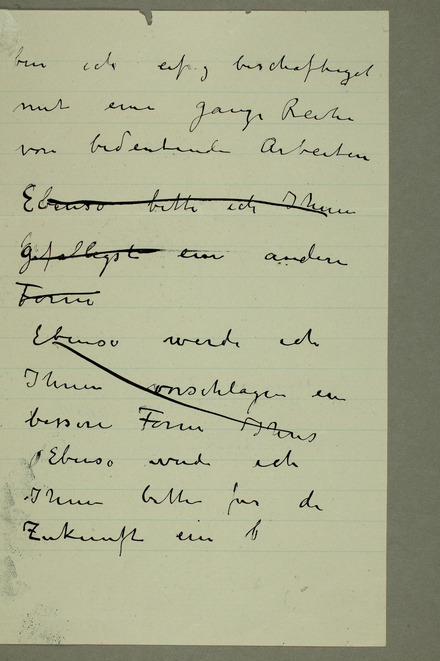 bin ich eifrig beschäftigt
mit eine ganze Reihe
von bedeutende Arbeiten
Ebenso bitte ich Ihnen
Gefälligst ein andere
Form
Ebenso werde ich
Ihnen vorschlagen ein
bessere Form Ihres
Ebenso werde ich
Ihnen bitte für die
Zukunft ein b